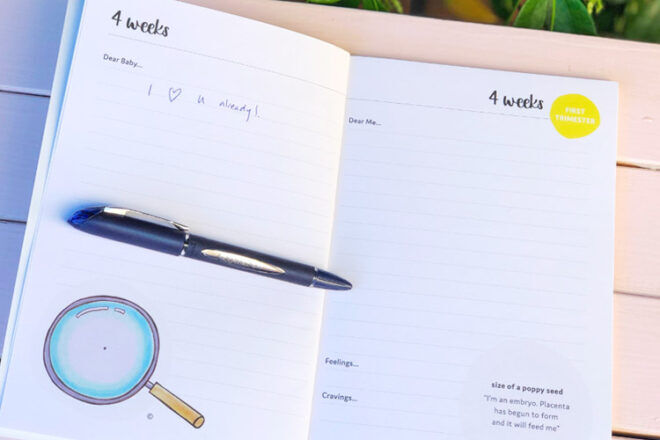 4 weeks
Dear Baby...
I ♡ u already!
©
4 weeks
FIRST
TRIMESTER
Dear Me...
Feelings...
Cravings...
size of a poppy seed
"I'm an embryo. Placenta
has begun to form
and it will feed me"